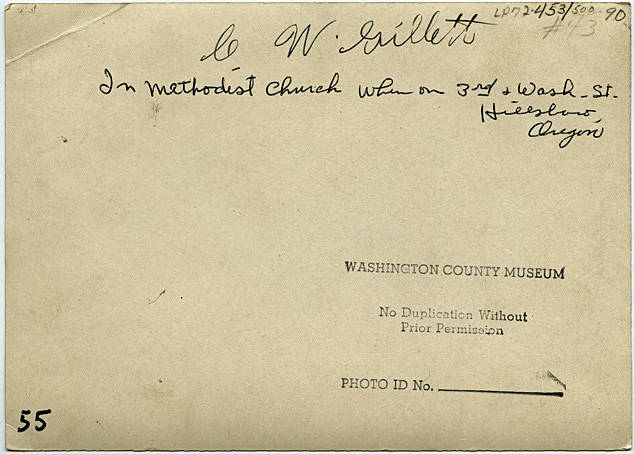 LP72-453/500-90
#43
C W. Gillett
In Methodist Church when on 3rd & Wash. St.
Hillsboro,
Oregon
WASHINGTON COUNTY MUSEUM
No Duplication Without
Prior Permission
PHOTO ID No.
55